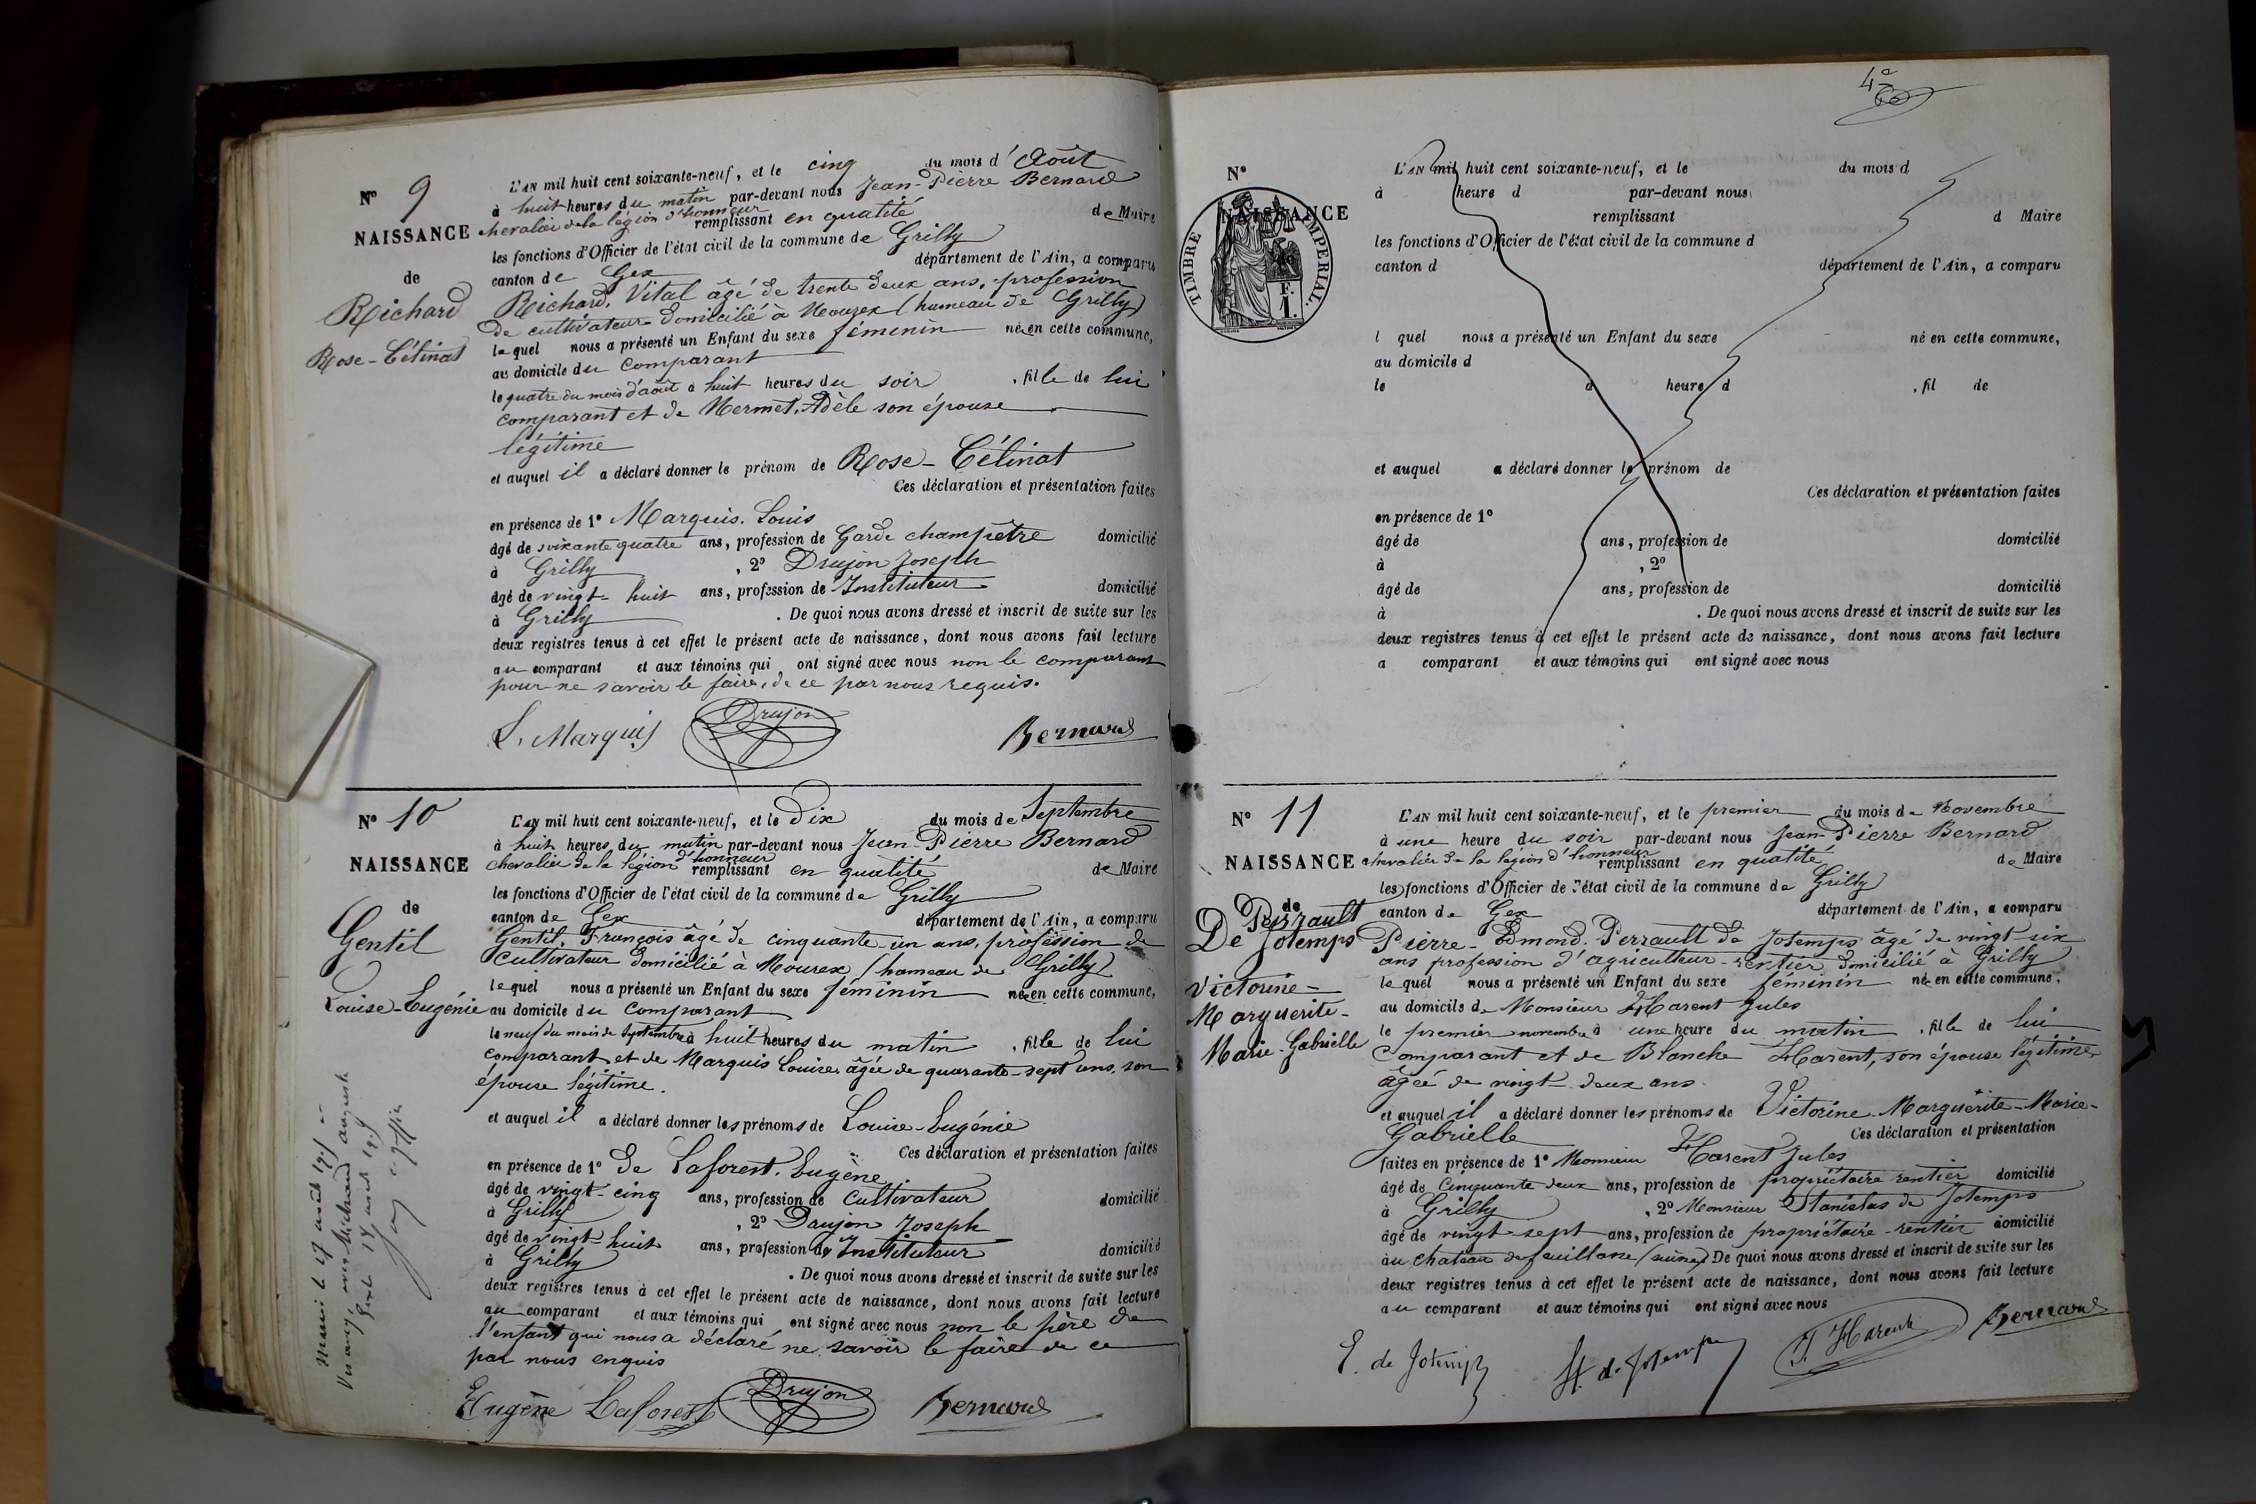 N° 9
NAISSANCE
de
Richard
Rose-Célinat
L'AN mil huit cent soixante-neuf, et le cinq du mois d'Août
à huit heures du matin par-devant nous Jean-Pierre Bernard
chevalier de la légion d'honneur remplissant en qualité de Maire
les fonctions d'Officier de l'état civil de la commune de Grilly
canton de Gex département de l'Ain, a comparu
Richard, Vital âgé de trente deux ans, profession
de cultivateur domicilié à Mourex (hameau de Grilly)
lequel nous a présenté un Enfant du sexe féminin née en cette commune,
au domicile du comparant
le quatre du mois d'août à huit heures du soir, fille de lui
comparant et de Mermet, Adèle son épouse
légitime
et auquel il a déclaré donner le prénom de Rose-Célinat
Ces déclaration et présentation faites
en présence de 1° Marquis, Louis
âgé de soixante quatre ans, profession de Garde champêtre domicilié
à Grilly, 2° Drujon Joseph
âgé de vingt-huit ans, profession de Instituteur domicilié
à Grilly. De quoi nous avons dressé et inscrit de suite sur les
deux registres tenus à cet effet le présent acte de naissance, dont nous avons fait lecture
au comparant et aux témoins qui ont signé avec nous non le comparant
pour ne savoir le faire, de ce par nous requis.
L. Marquis Drujon Bernard
N° 10
NAISSANCE
de
Gentil
Louise-Eugénie
L'AN mil huit cent soixante-neuf, et le Dix du mois de Septembre
à huit heures du matin par-devant nous Jean-Pierre Bernard
chevalier de la légion d'honneur remplissant en qualité de Maire
les fonctions d'Officier de l'état civil de la commune de Grilly
canton de Gex département de l'Ain, a comparu
Gentil, François âgé de cinquante un ans, profession de
cultivateur domicilié à Mourex (hameau de Grilly)
lequel nous a présenté un Enfant du sexe féminin née en cette commune,
au domicile du comparant
le neuf du mois de Septembre à huit heures du matin, fille de lui
comparant et de Marquis Louise, âgée de quarante-sept ans, son
épouse légitime.
et auquel il a déclaré donner les prénoms de Louise-Eugénie
Ces déclaration et présentation faites
en présence de 1° De Laforest, Eugène
âgé de vingt-cinq ans, profession de cultivateur domicilié
à Grilly, 2° Drujon Joseph
âgé de vingt-huit ans, profession de Instituteur domicilié
à Grilly. De quoi nous avons dressé et inscrit de suite sur les
deux registres tenus à cet effet le présent acte de naissance, dont nous avons fait lecture
au comparant et aux témoins qui ont signé avec nous non le père de
l'enfant qui nous a déclaré ne savoir le faire de ce
par nous enquis
Eugène Laforest Drujon Bernard
N°
NAISSANCE
de
TIMBRE IMPERIAL.
1 F.
L'AN mil huit cent soixante-neuf, et le du mois d
à heure d par-devant nous
remplissant d Maire
les fonctions d'Officier de l'état civil de la commune d
canton d département de l'Ain, a comparu
l quel nous a présenté un Enfant du sexe né en cette commune,
au domicile d
le à heure d, fil de
et auquel a déclaré donner le prénom de
Ces déclaration et présentation faites
en présence de 1°
âgé de ans, profession de domicilié
à, 2°
âgé de ans, profession de domicilié
à. De quoi nous avons dressé et inscrit de suite sur les
deux registres tenus à cet effet le présent acte de naissance, dont nous avons fait lecture
a comparant et aux témoins qui ont signé avec nous
N° 11
NAISSANCE
de
Perrault
De Jotemps
Victorine-
Marguerite-
Marie-Gabrielle
L'AN mil huit cent soixante-neuf, et le premier du mois de Novembre
à une heure du soir par-devant nous Jean-Pierre Bernard
chevalier de la légion d'honneur remplissant en qualité de Maire
les fonctions d'Officier de l'état civil de la commune de Grilly
canton de Gex département de l'Ain, a comparu
Pierre-Edmond, Perrault de Jotemps âgé de vingt six
ans profession d'agriculteur-rentier domicilié à Grilly
lequel nous a présenté un Enfant du sexe féminin née en cette commune,
au domicile de Monsieur Harent Jules
le premier novembre à une heure du matin, fille de lui
comparant et de Blanche Harent, son épouse légitime,
âgée de vingt-deux ans
et auquel il a déclaré donner les prénoms de Victorine-Marguerite-Marie-
Gabrielle Ces déclaration et présentation
faites en présence de 1° Monsieur Harent Jules
âgé de Cinquante deux ans, profession de propriétaire rentier domicilié
à Grilly, 2° Monsieur Stanislas de Jotemps
âgé de vingt-sept ans, profession de propriétaire-rentier domicilié
au chateau de feuillasse (suisse) De quoi nous avons dressé et inscrit de suite sur les
deux registres tenus à cet effet le présent acte de naissance, dont nous avons fait lecture
au comparant et aux témoins qui ont signé avec nous
E. de Jotemps St. de Jotemps J. Harent Bernard